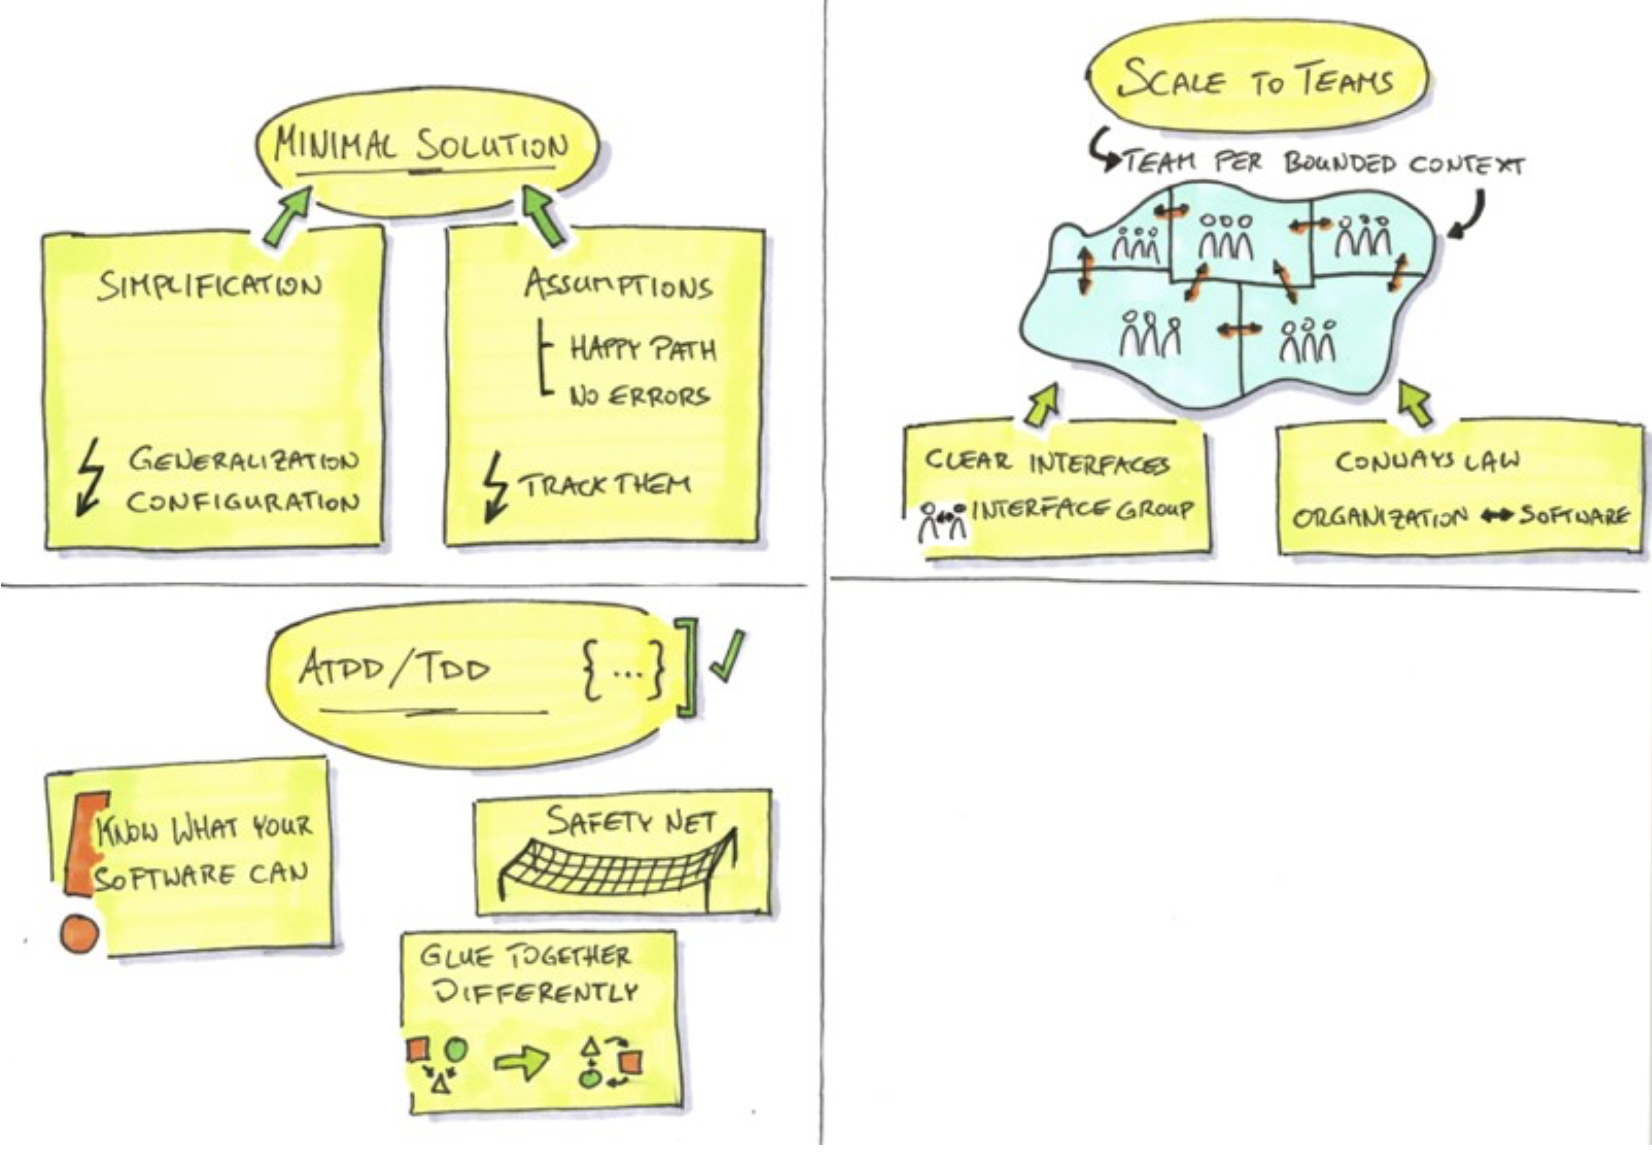 MINIMAL SOLUTION
SIMPLIFICATION
GENERALIZATION
CONFIGURATION
ASSUMPTIONS
HAPPY PATH
NO ERRORS
TRACK THEM
SCALE TO TEAMS
TEAM PER BOUNDED CONTEXT
CLEAR INTERFACES
INTERFACE GROUP
CONWAYS LAW
ORGANIZATION ↔ SOFTWARE
ATDD/TDD {...}
KNOW WHAT YOUR
SOFTWARE CAN
SAFETY NET
GLUE TOGETHER
DIFFERENTLY